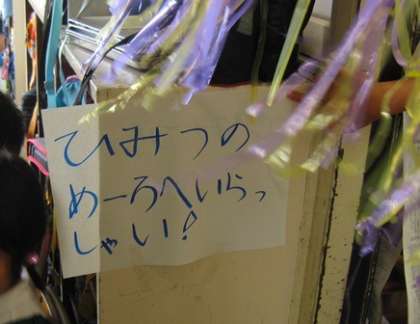 ひみつの
めーろへいらっ
しゃい!